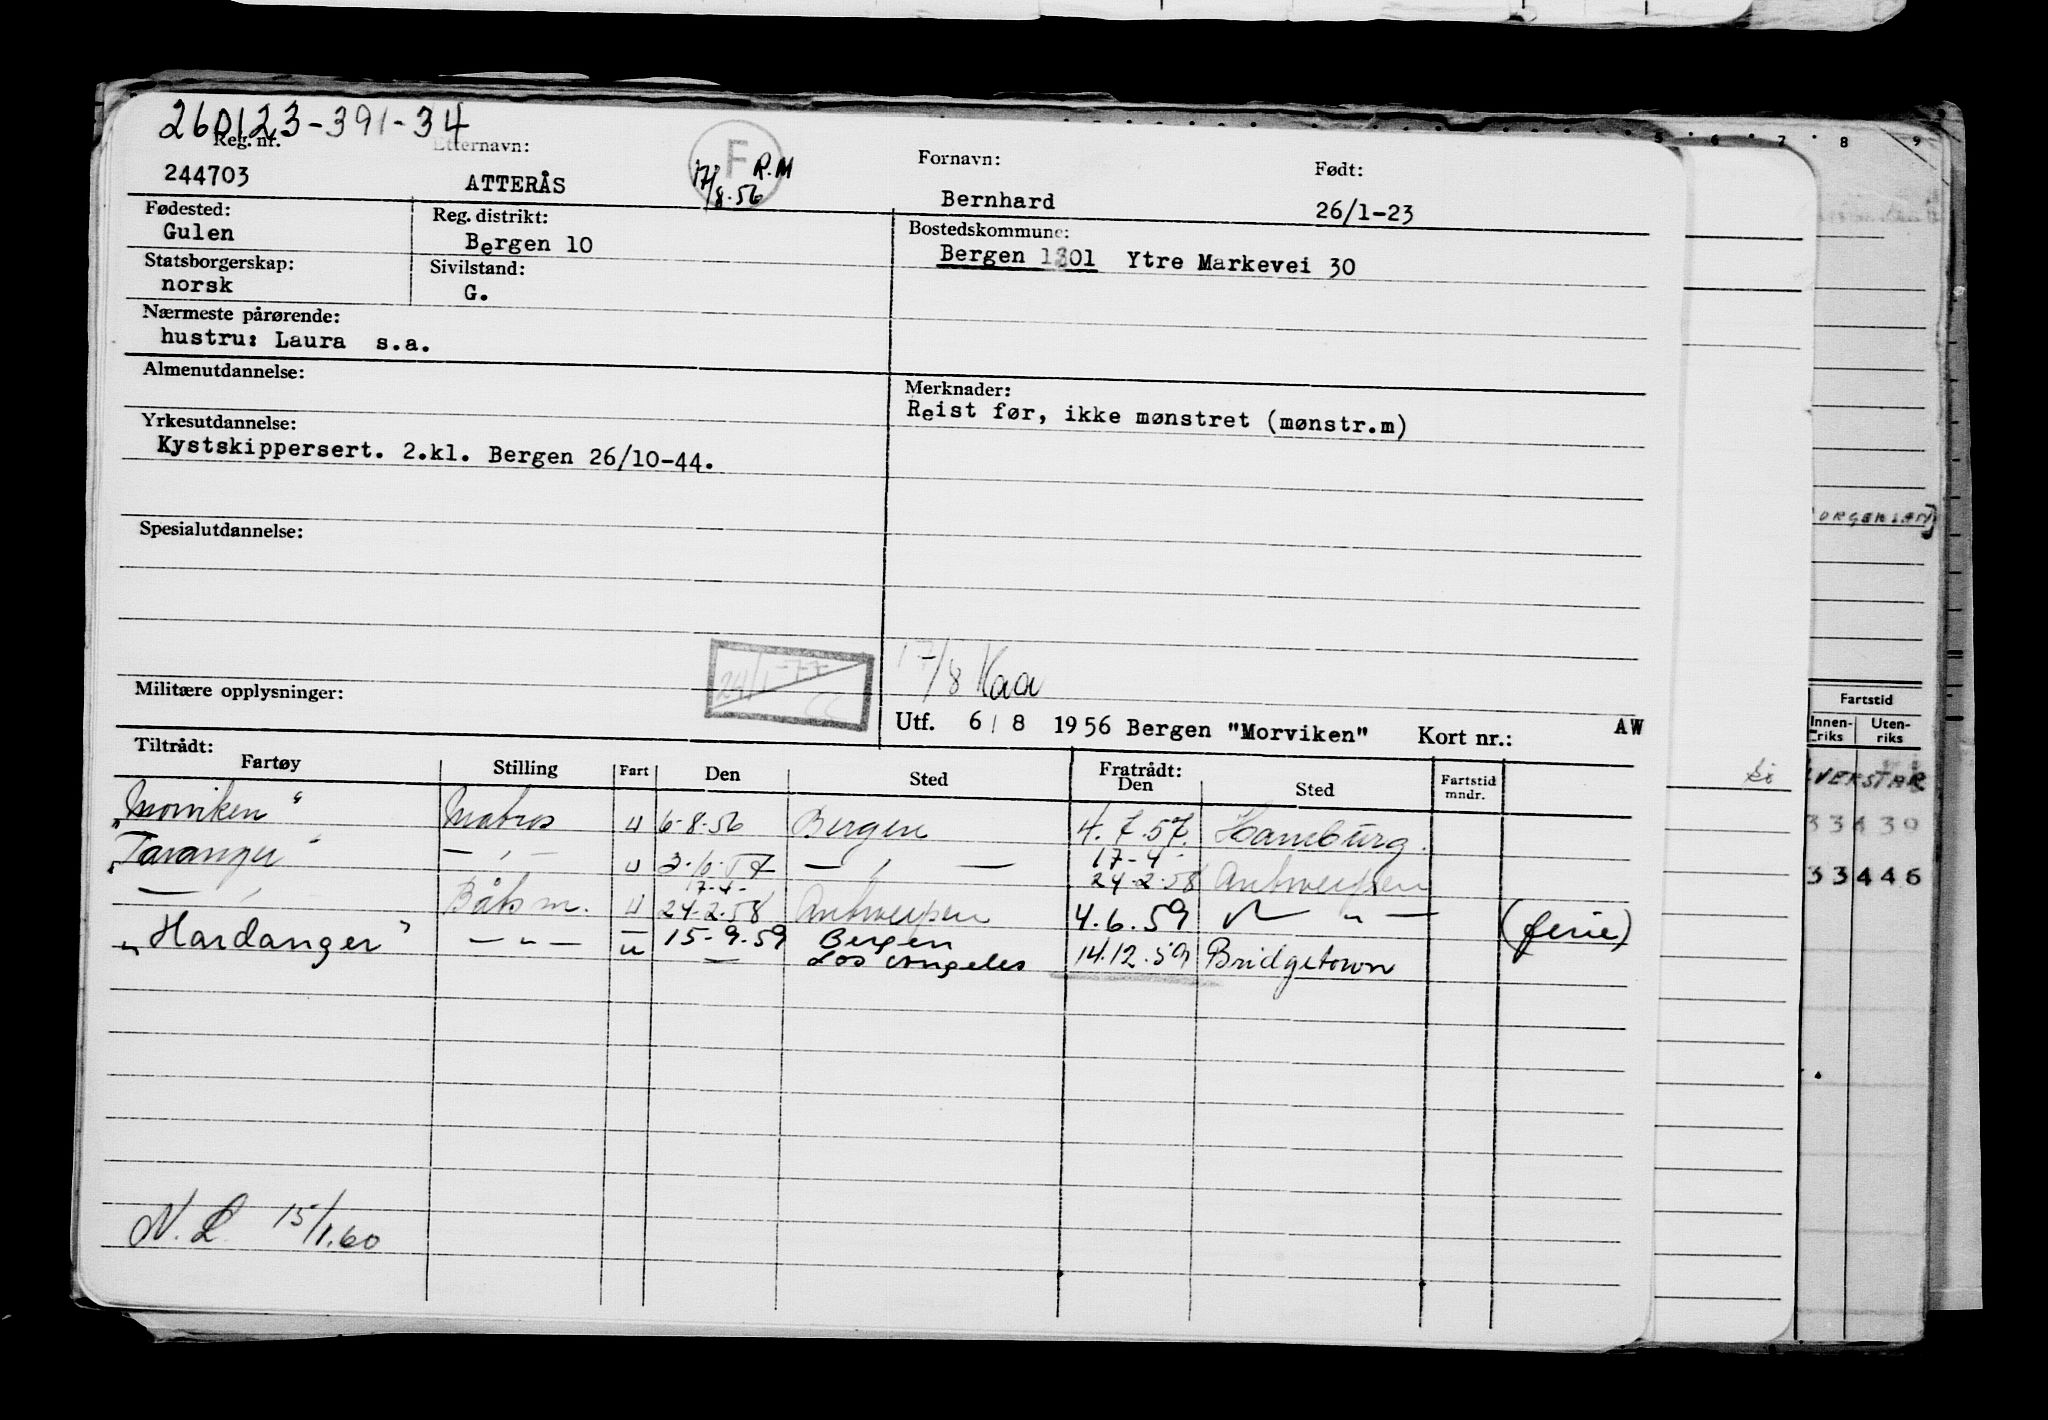 260123-391-34
Reg. nr. Etternavn: Fornavn: Født:
244703 ATTERÅS F R.M 17/8.56 Bernhard 26/1-23
Fødested: Reg. distrikt: Bostedskommune:
Gulen Bergen 10 Bergen 1301 Ytre Markevei 30
Statsborgerskap: Sivilstand:
norsk G.
Nærmeste pårørende:
hustru: Laura s.a.
Almenutdannelse: Merknader:
Reist før, ikke mønstret (mønstr.m)
Yrkesutdannelse:
Kystskippersert. 2.kl. Bergen 26/10-44.
Spesialutdannelse:
24/1-77 17/8 Kaa
Militære opplysninger:
Utf. 6/8 1956 Bergen "Morviken" Kort nr.: AW
Tiltrådt: Fratrådt:
Fartøy Stilling Fart Den Sted Den Sted Fartstid mndr.
"Morviken" Matros u 6-8-56 Bergen 4.7.57. Hamburg.
"Tavanger" — " — u — " — 17-4-
24-2-58 Antwerpen
17-4-
— " — Båtsm. u 24-2.58 Antwerpen 4.6.59 — " — (ferie)
"Hardanger" — " — u 15-9-59 Bergen
— Los Angeles 14.12.59 Bridgetown
N.L. 15/1.60
5 6 7 8 9
Fartstid
Innen-riks Uten-riks
33439
33446